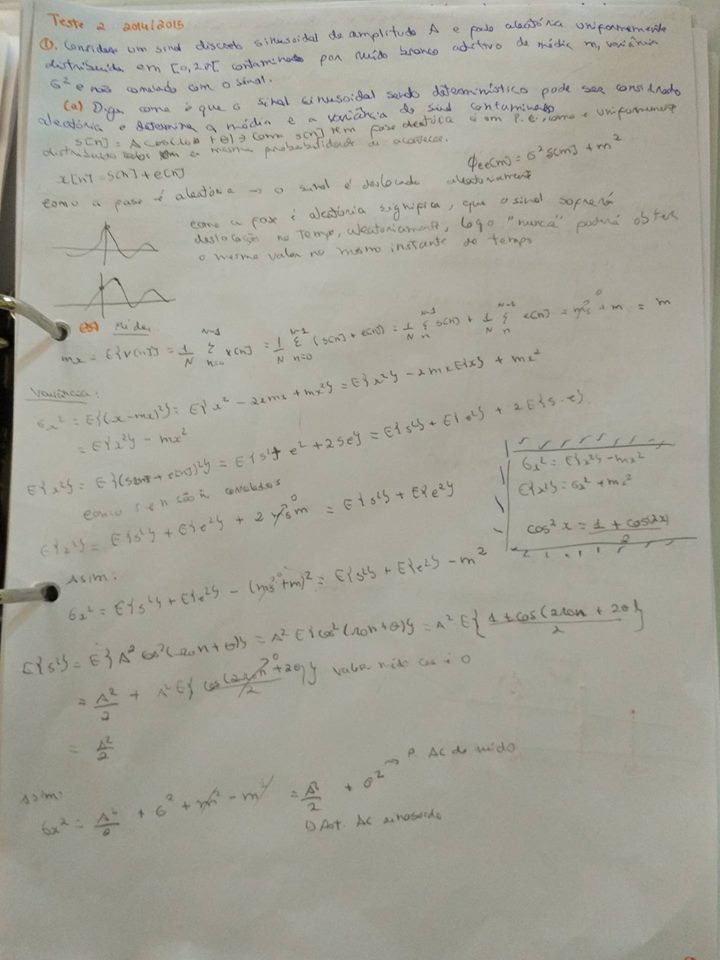 Teste 2 2014/2015
①. Considere um sinal discreto sinusoidal de amplitude A e fase aleatória uniformemente
distribuída em [0,2π[ contaminado por ruído branco aditivo de média m, variância
σ² e não correlado com o sinal.
(a) Diga como é que o sinal sinusoidal sendo determinístico pode ser considerado
aleatório e determine a média e a variância do sinal contaminado
s[n] = A cos(ω₀n + θ) → como s[n] tem fase aleatória é um P.E., como é uniformement
distribuídos todos têm a mesma probabilidade de acontecer.
x[n] = s[n] + e[n]
φee[m] = σ² δ[m] + m²
como a fase é aleatória → o sinal é deslocado aleatoriamente
como a fase é aleatória significa, que o sinal sofrerá
deslocação no tempo, aleatoriamente, logo "nunca" poderá obter
o mesmo valor no mesmo instante de tempo
(b) Média
mx = E{x[n]} = 1/N Σ x[n] = 1/N Σ (s[n] + e[n]) = 1/N Σ s[n] + 1/N Σ e[n] = ms + m = m
Variância:
σx² = E{(x-mx)²} = E{x² - 2xmx + mx²} = E{x²} - 2mxE{x} + mx²
= E{x²} - mx²
E{x²} = E{(s[n] + e[n])²} = E{s² + e² + 2se} = E{s²} + E{e²} + 2E{s·e}
como s e n são correlados
σx² = E{x²} - mx²
E{x²} = σx² + mx²
cos²x = 1 + cos(2x) / 2
E{x²} = E{s²} + E{e²} + 2 ms m = E{s²} + E{e²}
Assim:
σx² = E{s²} + E{e²} - (ms + m)² = E{s²} + E{e²} - m²
E{s²} = E{A² cos²(ω₀n + θ)} = A² E{cos²(ω₀n + θ)} = A² E{1 + cos(2ω₀n + 2θ) / 2}
= A²/2 + A² E{cos(2ω₀n + 2θ) / 2} valor médio cos é 0
= A²/2
Assim:
σx² = A²/2 + σ² + m² - m² = A²/2 + σ² → P. AC do ruído
↳ Pot. AC sinusoide